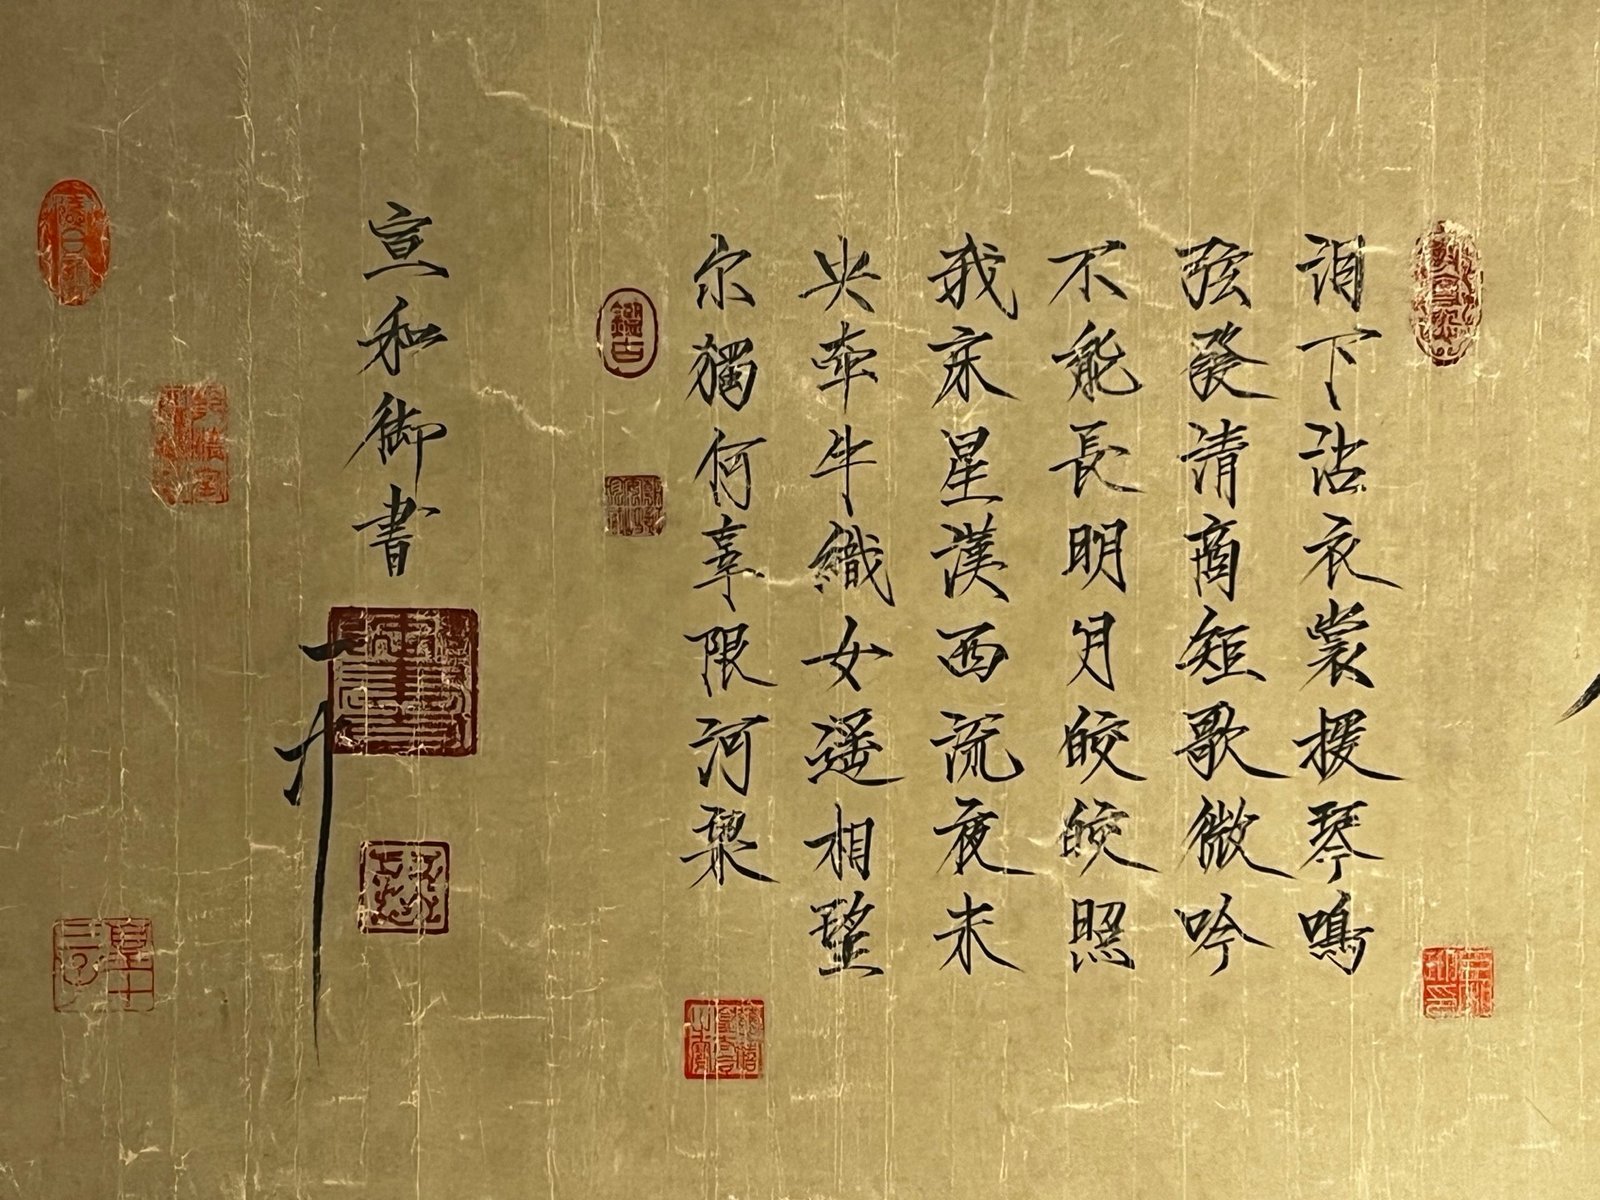 泪下沾衣裳援琴鳴
弦發清商短歌微吟
不能長明月皎皎照
我床星漢西流夜未
央牽牛織女遥相望
尔獨何辜限河梁
鑑古
宣和御書